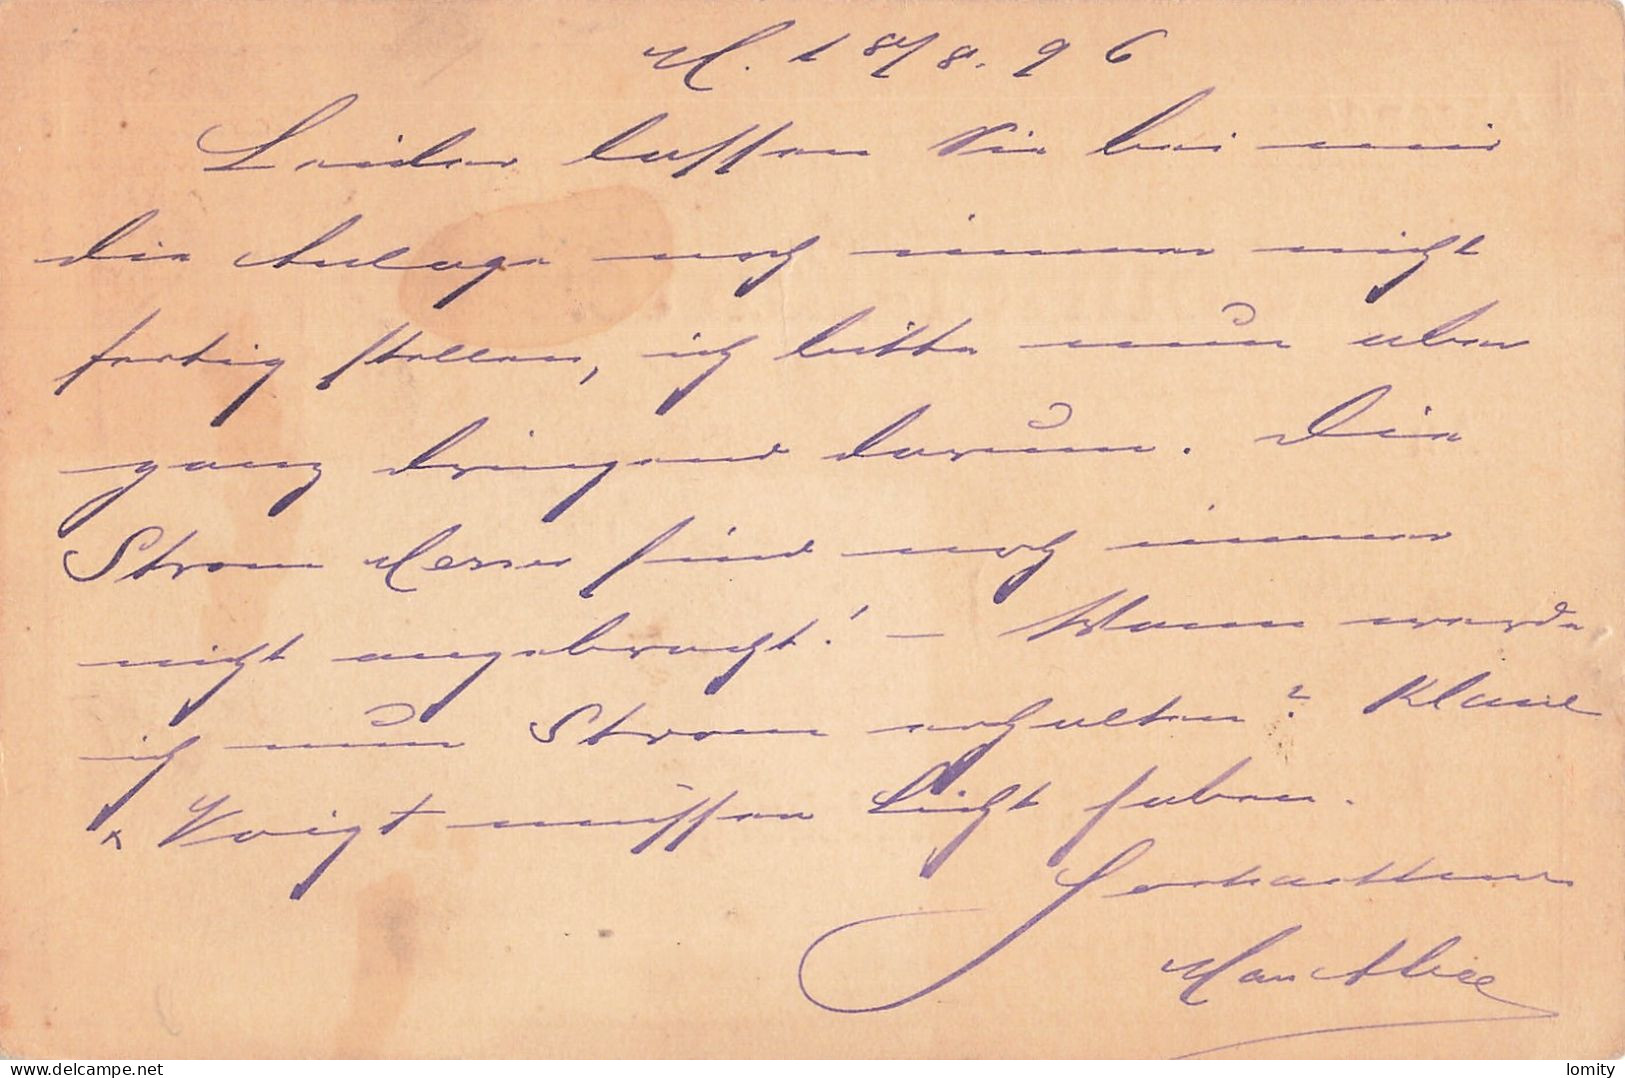 M. 18/8. 96
Leider lassen Sie bei mir
die Anlage noch immer nicht
fertig stellen, ich bitte nun aber
ganz dringend darum. Die
Strom Messer sind noch immer
nicht angebracht! – Wann werde
ich nun Strom erhalten? Klause
Voigt müssen Licht haben.
delcampe.net
lomity